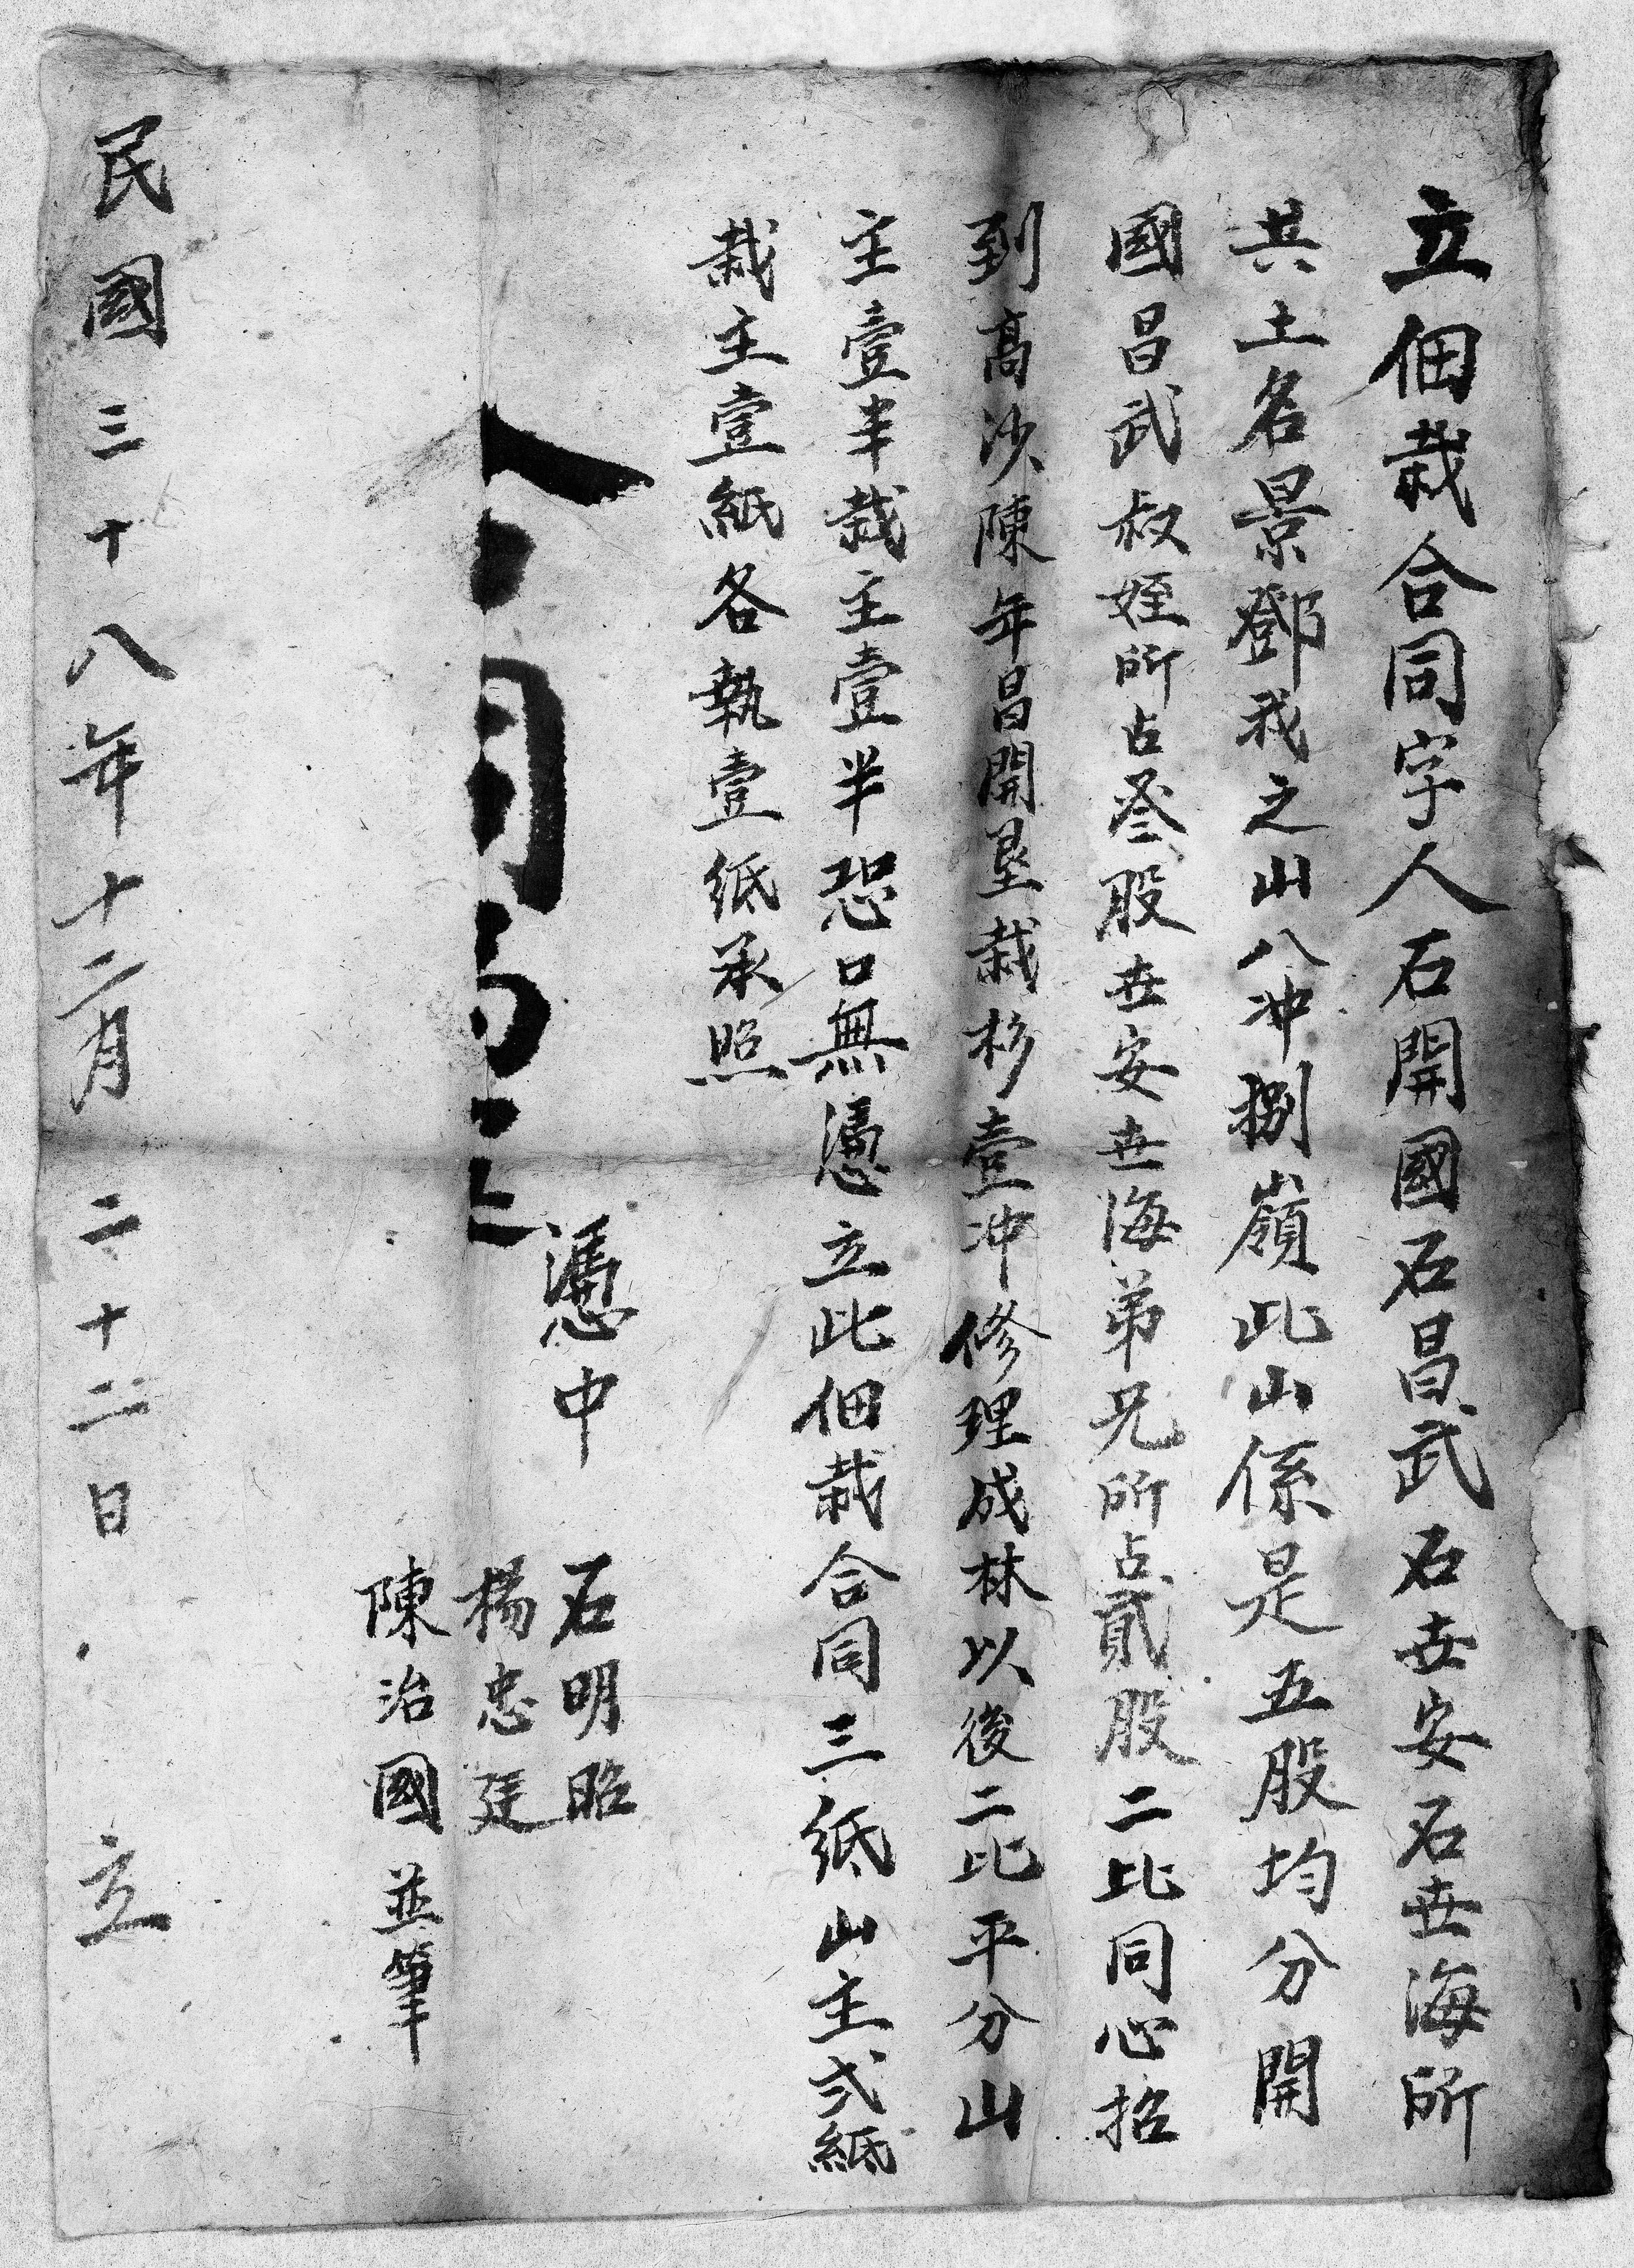 立佃栽合同字人石開國石昌武石世安石世海所
共土名景鄧我之山八冲捌嶺此山係是五股均分開
國昌武叔姪所占叁股世安世海弟兄所占貳股二比同心招
到高沙陳年昌開墾栽杉壹冲修理成林以後二比平分山
主壹半栽主壹半恐口無憑立此佃栽合同三紙山主弍紙
栽主壹紙各執壹紙承照
憑中
石明昭
楊忠廷
陳治國並筆
民國三十八年十二月二十二日立